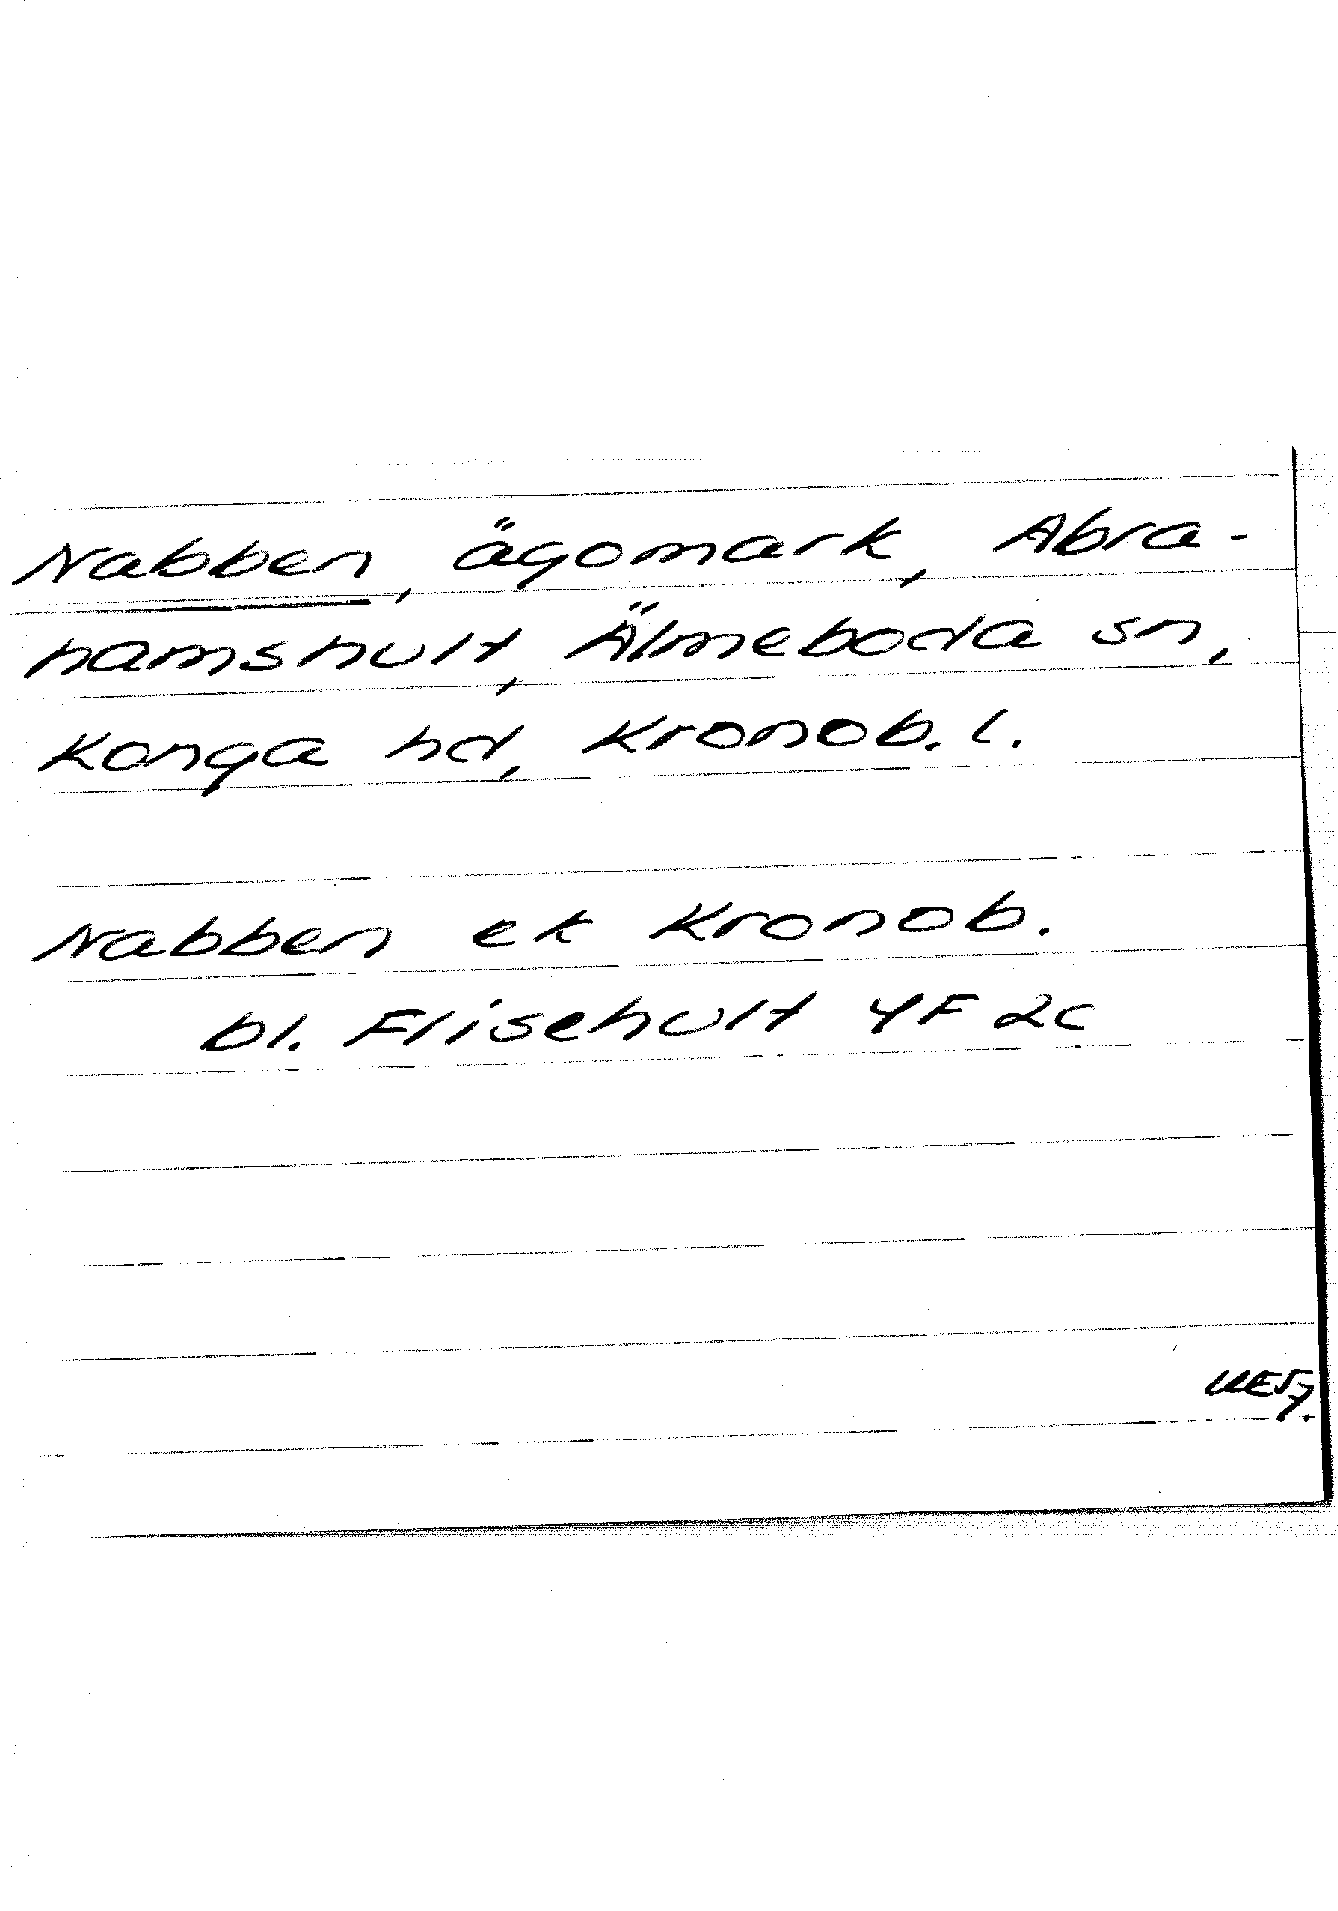 Nabben, ägomark, Abra-
hamshult, Älmeboda sn,
Konga hd, Kronob. l.
Nabben ek Kronob.
bl. Flisehult 4F 2c